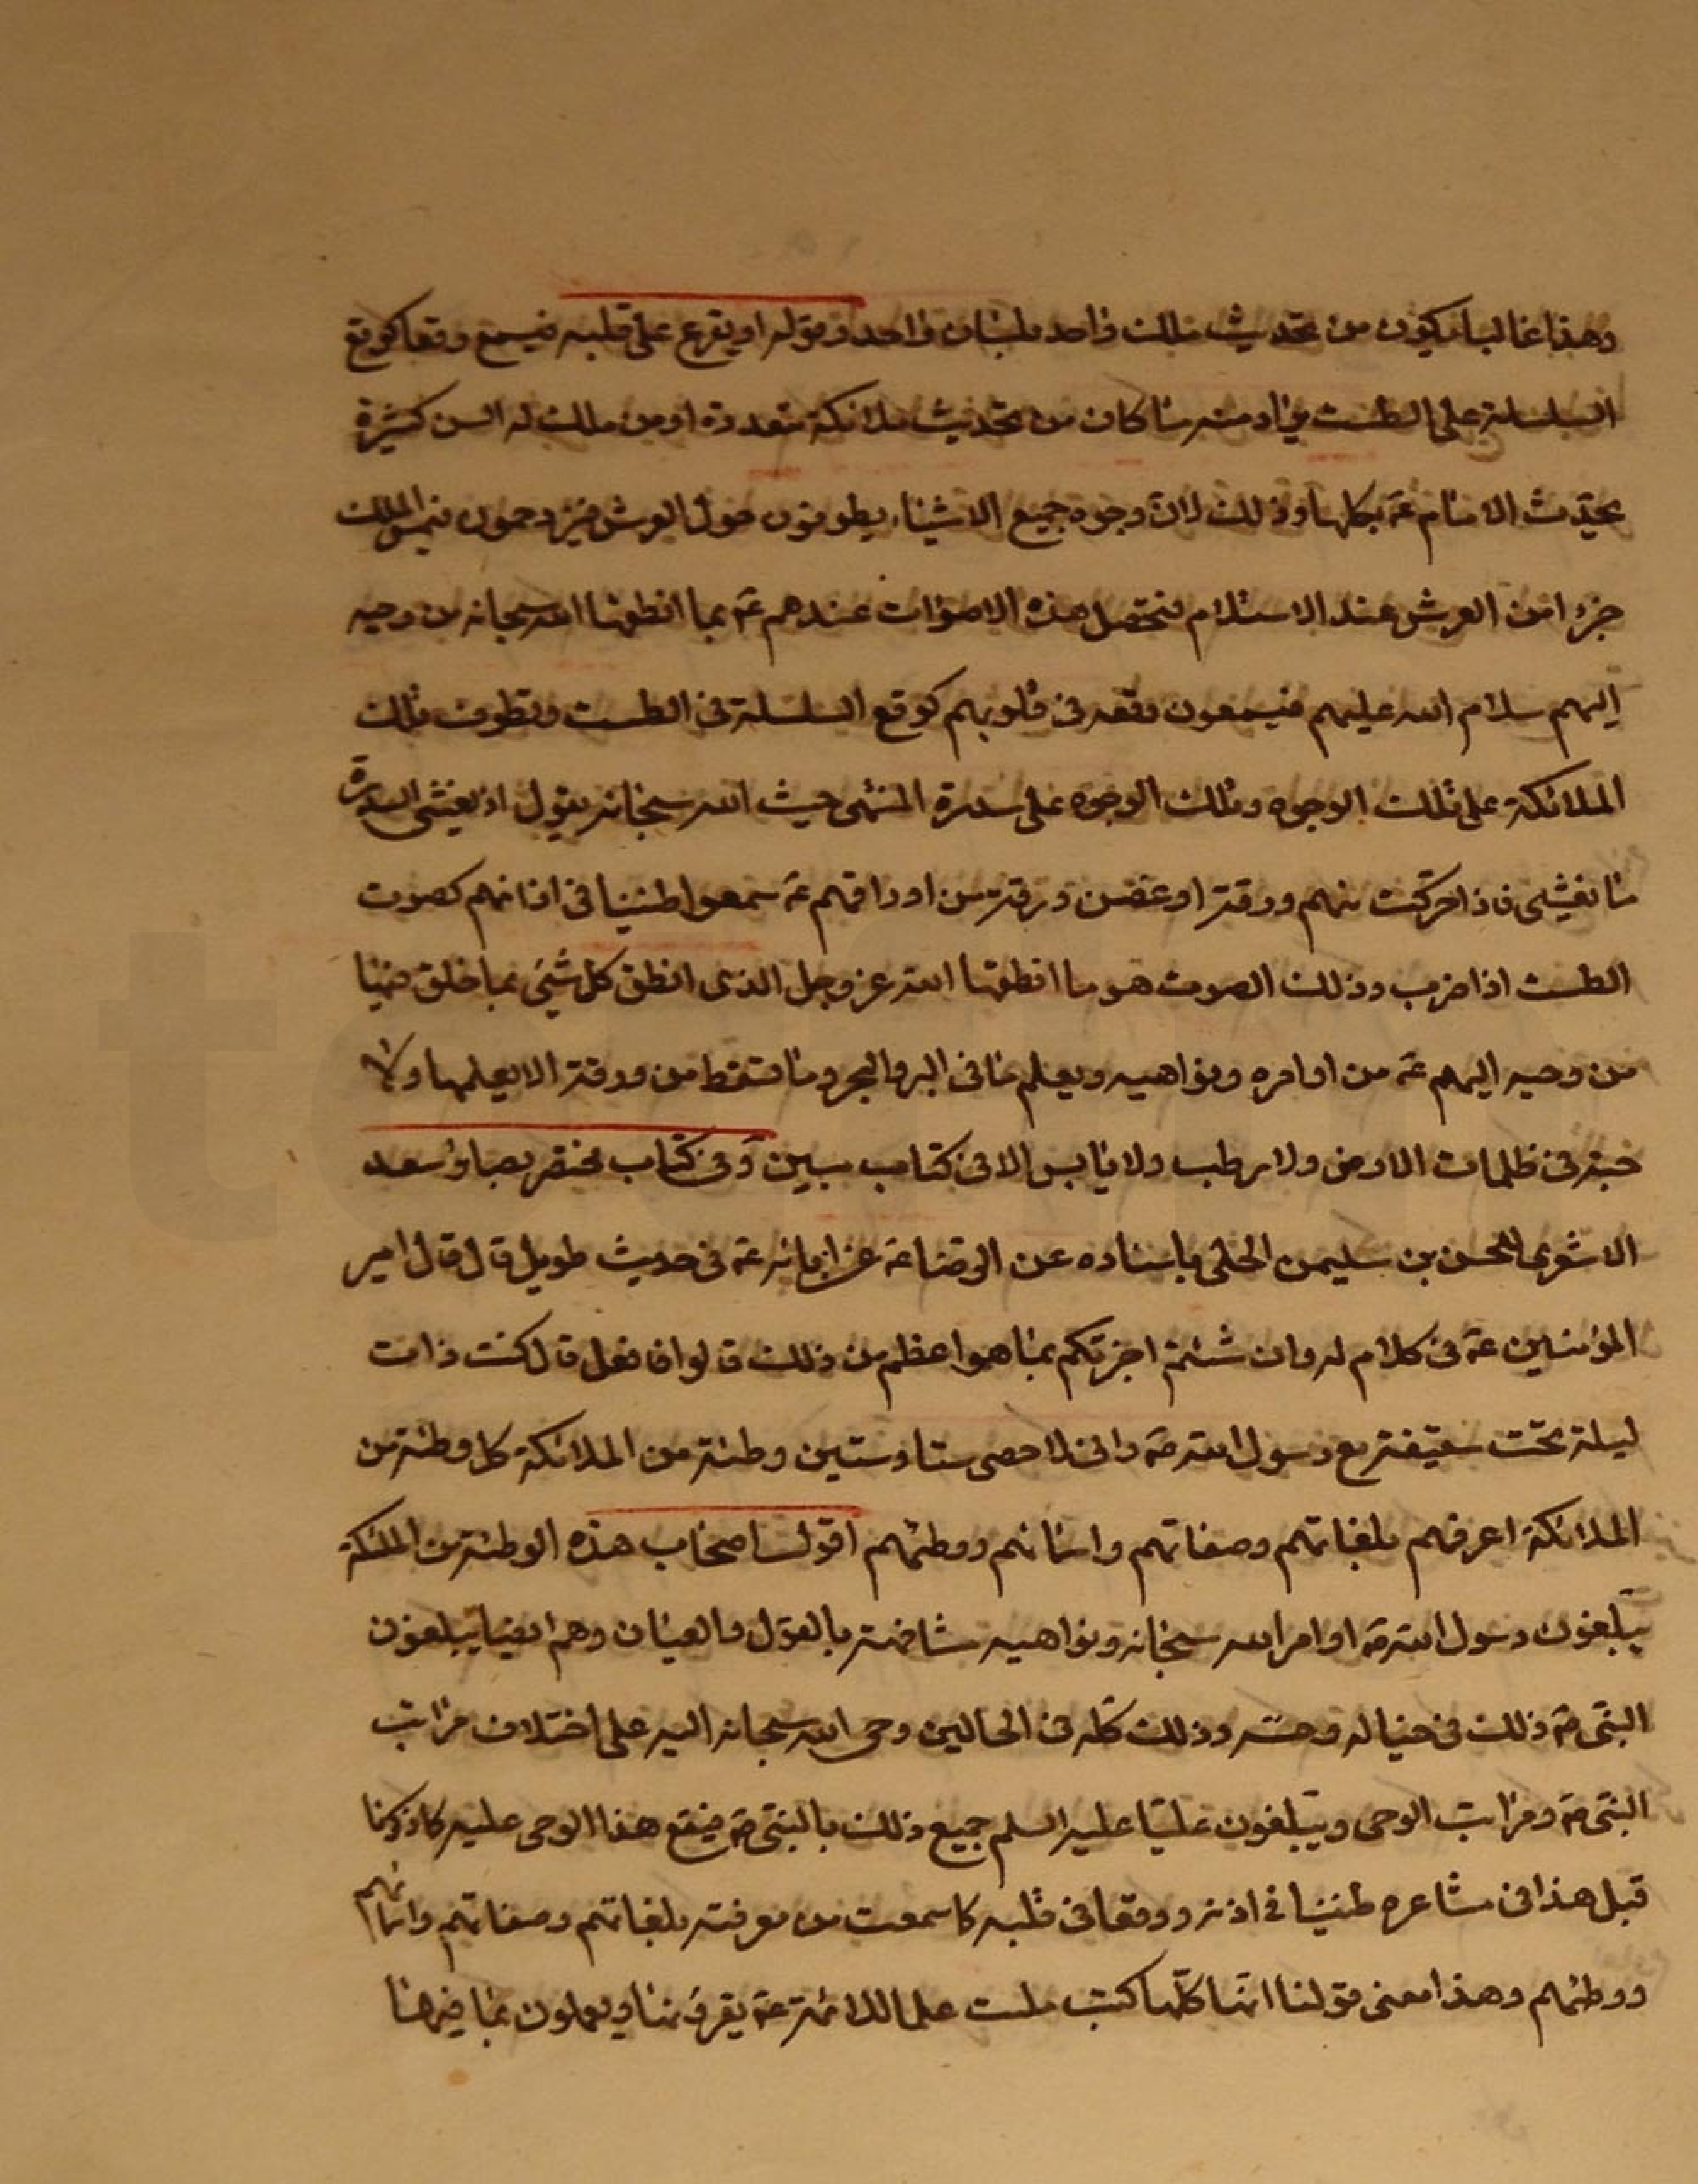 وهذا غالبا يكون من تحديث ملك واحد بلسان واحد وقوله او يقرع على قلبه فيسمع وقعا كوقع
السلسلة على الطست يراد منه ما كان من تحديث ملائكة متعددة او من ملك له السن كثيرة
يحدّث الامام عۤ بكلها وذلك لانّ وجوه جميع الاشياء يطوفون حول العرش فيزدحمون فيمس الملك
جزءا من العرش عند الاستلام فتحصل هذه الاصوات عندهم عۤ بما انطقها الله سبحانه من وحيه
اليهم سلام الله عليهم فيسمعون وقعه في قلوبهم كوقع السلسلة في الطست وتطوف تلك
الملائكة على تلك الوجوه وتلك الوجوه على سدرة المنتهى حيث الله سبحانه يقول اذ يغشى السدرة
ما يغشى فاذا حركت منهم ورقة او غصن ورقة من اوراقهم عۤ سمعوا طنينا في اذانهم كصوت
الطست اذا ضرب وذلك الصوت هو ما انطقها الله عز وجل الذى انطق كل شئ بما خلق فيها
من وحيه اليهم عۤ من اوامره ونواهيه ويعلم ما في البر والبحر وما تسقط من ورقة الا يعلمها ولا
حبة في ظلمات الارض ولا رطب ولا يابس الا في كتاب مبين وفي كتاب مختصر بصائر سعد
الاشعرى للحسن بن سليمن الحلى باسناده عن الرضا عۤ عن ابائه عۤ في حديث طويل قال قال امير
المؤمنين عۤ في كلام له وان شئتم اخبرتكم بما هو اعظم من ذلك قالوا فافعل قال كنت ذات
ليلة تحت سقيفة مع رسول الله صۤ وانى لاحصى ستا وستين وطئة من الملائكة كل وطئة من
الملائكة اعرفهم بلغاتهم وصفاتهم واسمائهم ووطئهم اقول اصحاب هذه الوطئة من الملئكة
يبلّغون رسول الله صۤ اوامر الله سبحانه ونواهيه مشافهة بالقول والعيان وهم ايضا يبلغون
النبى صۤ ذلك في خياله وحسّه وذلك كله في الحالين وحى الله سبحانه اليه على اختلاف مراتب
النبى صۤ ومراتب الوحى ويبلّغون عليّا عليه السلم جميع ذلك بالنبى صۤ فيقع هذا الوحى عليه كما ذكرنا
قبل هذا في مشاعره طنينا في اذنه ووقعا في قلبه كما سمعت من معرفته بلغاتهم وصفاتهم واسمائهم
ووطئهم وهذا معنى قولنا انها كلّها كتب ملت علما للائمة عۤ يقرؤنها ويعملون بما فيها